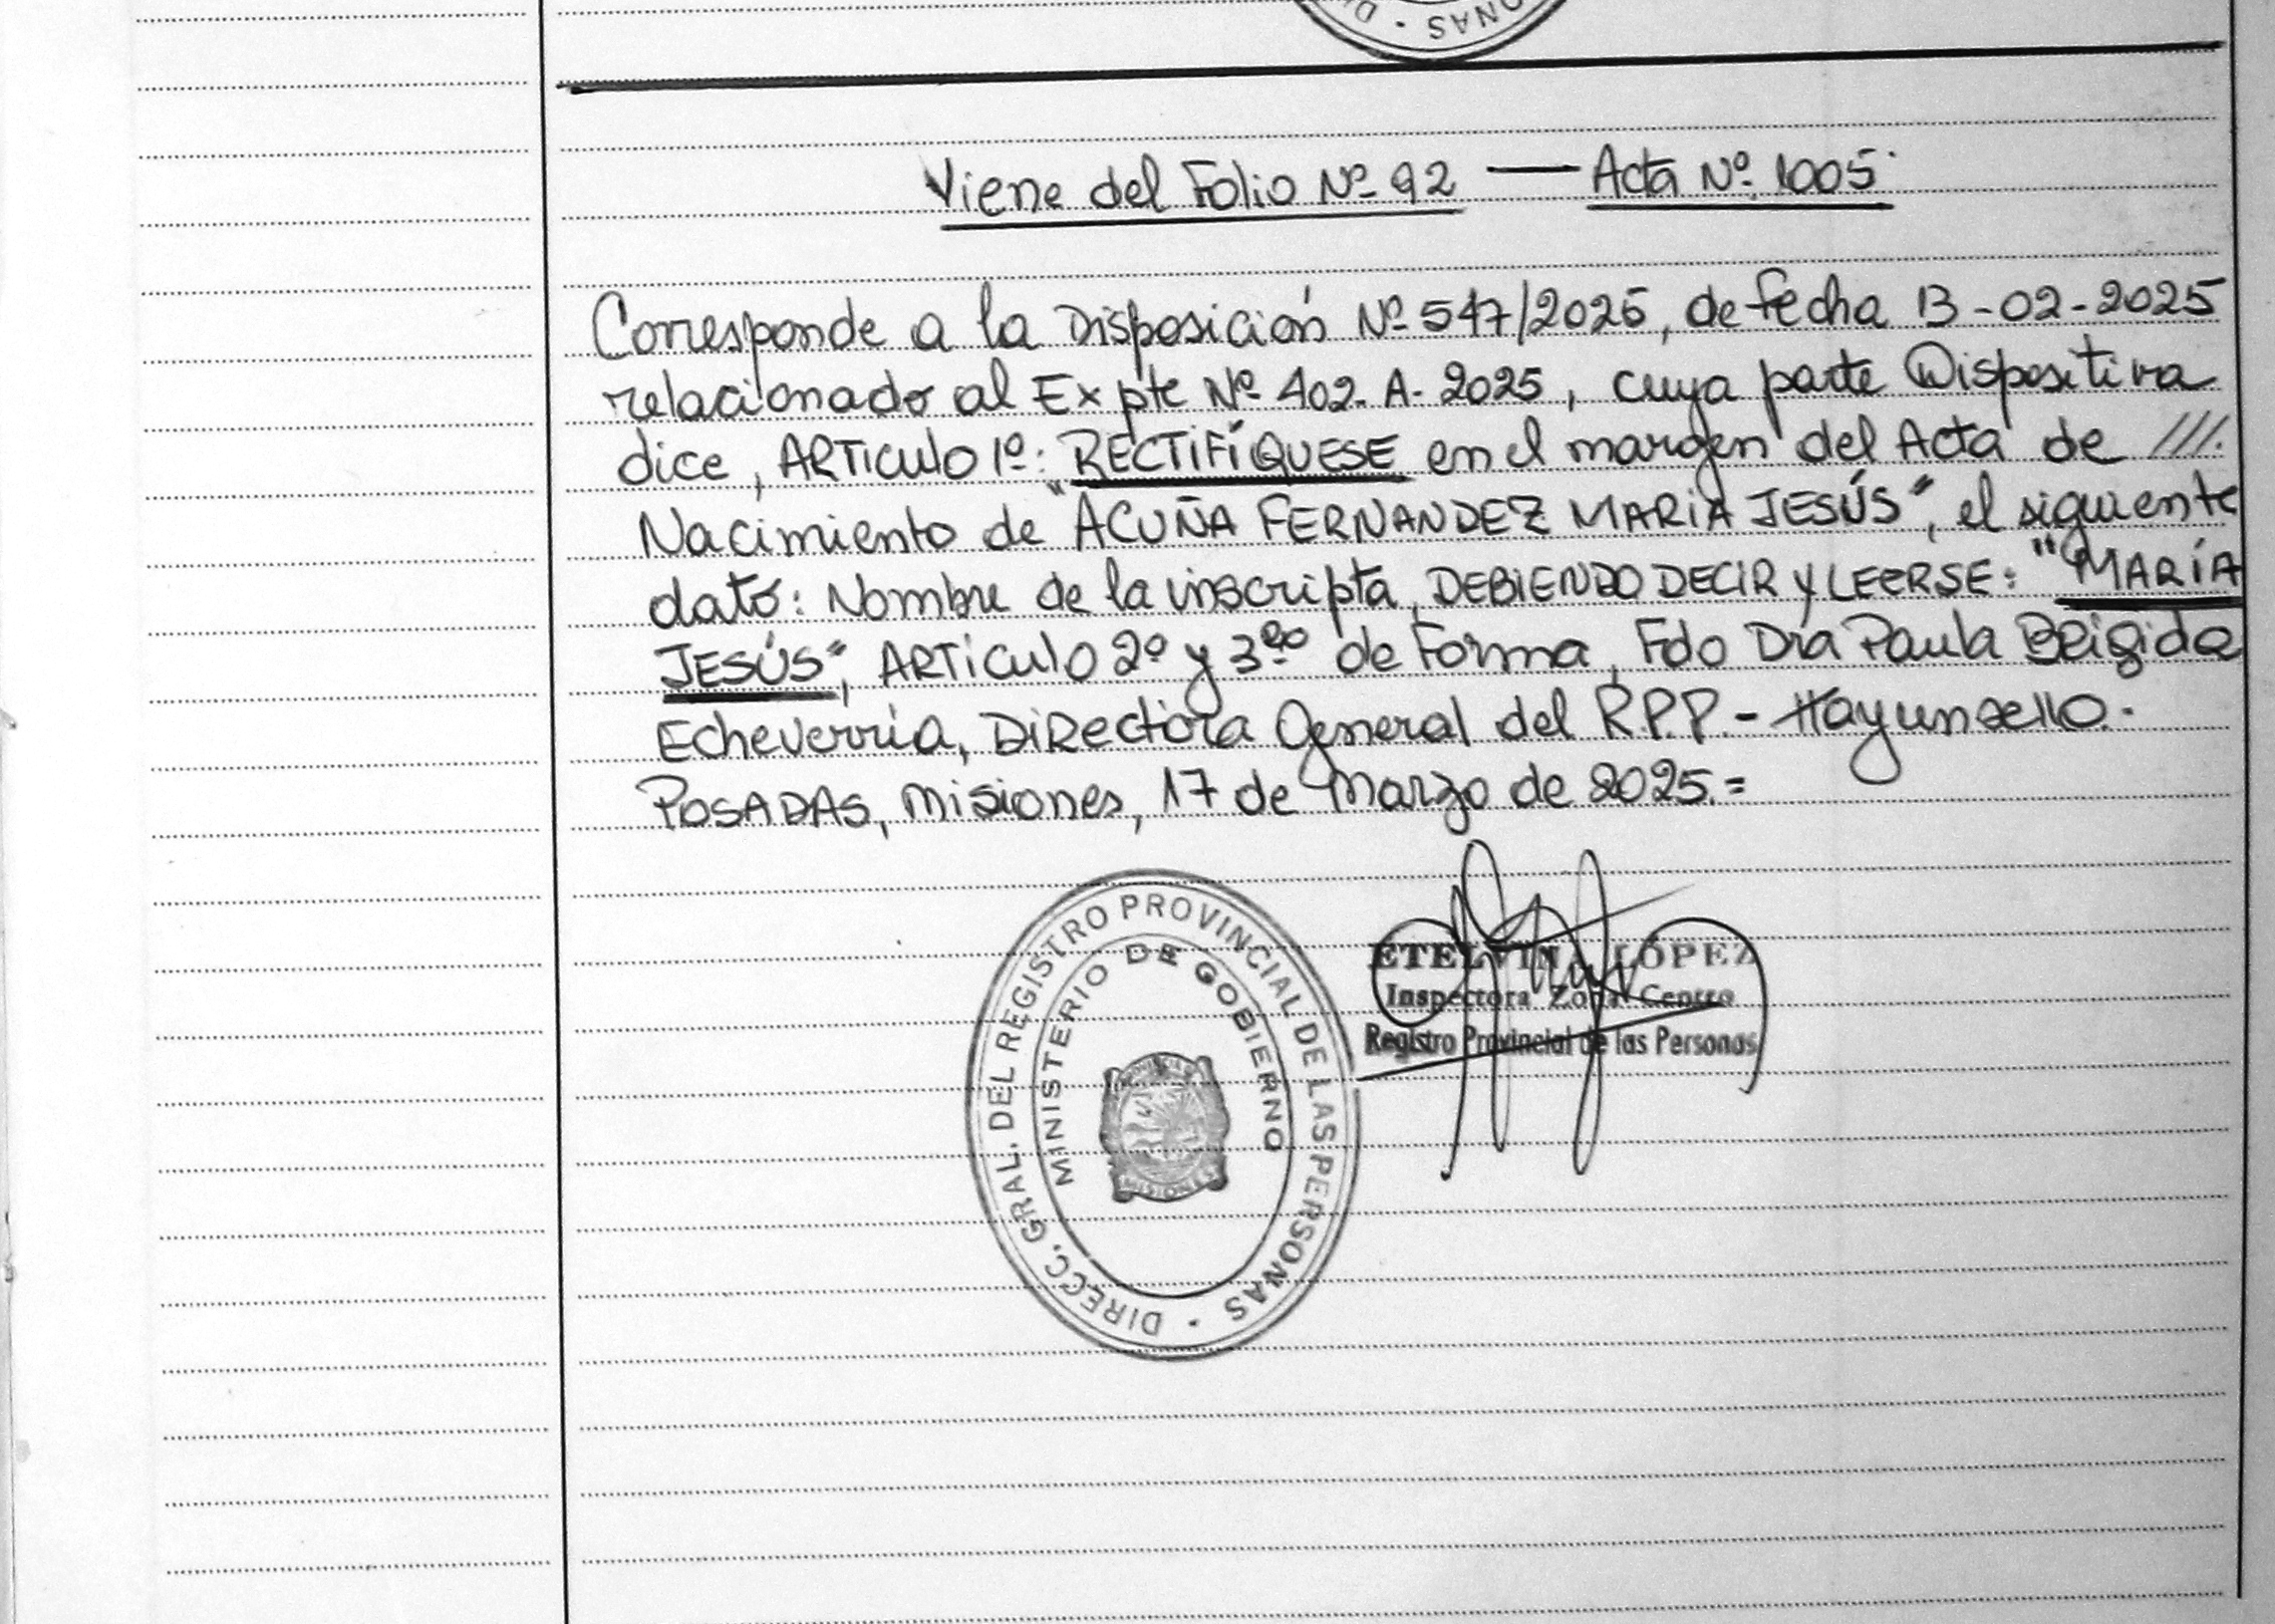 ONAS · D
Viene del Folio Nº 92 — Acta Nº 1005.
Corresponde a la Disposición Nº 547/2025, de fecha 13-02-2025
relacionado al Expte Nº 402-A-2025, cuya parte Dispositiva
dice, ARTICULO 1º: RECTIFÍQUESE en el margen del Acta de ///.
Nacimiento de "ACUÑA FERNANDEZ MARIA JESÚS", el siguiente
dato: Nombre de la inscripta, DEBIENDO DECIR Y LEERSE: "MARÍA
JESÚS", ARTICULO 2º y 3ero de Forma, Fdo Dra Paula Brigida
Echeverria, Directora General del R.P.P.- Hay un sello.-
POSADAS, Misiones, 17 de Marzo de 2025.=
DIRECC. GRAL. DEL REGISTRO PROVINCIAL DE LAS PERSONAS ·
MINISTERIO DE GOBIERNO
MISIONES
ETELVINA LÓPEZ
Inspectora Zona Centro
Registro Provincial de las Personas